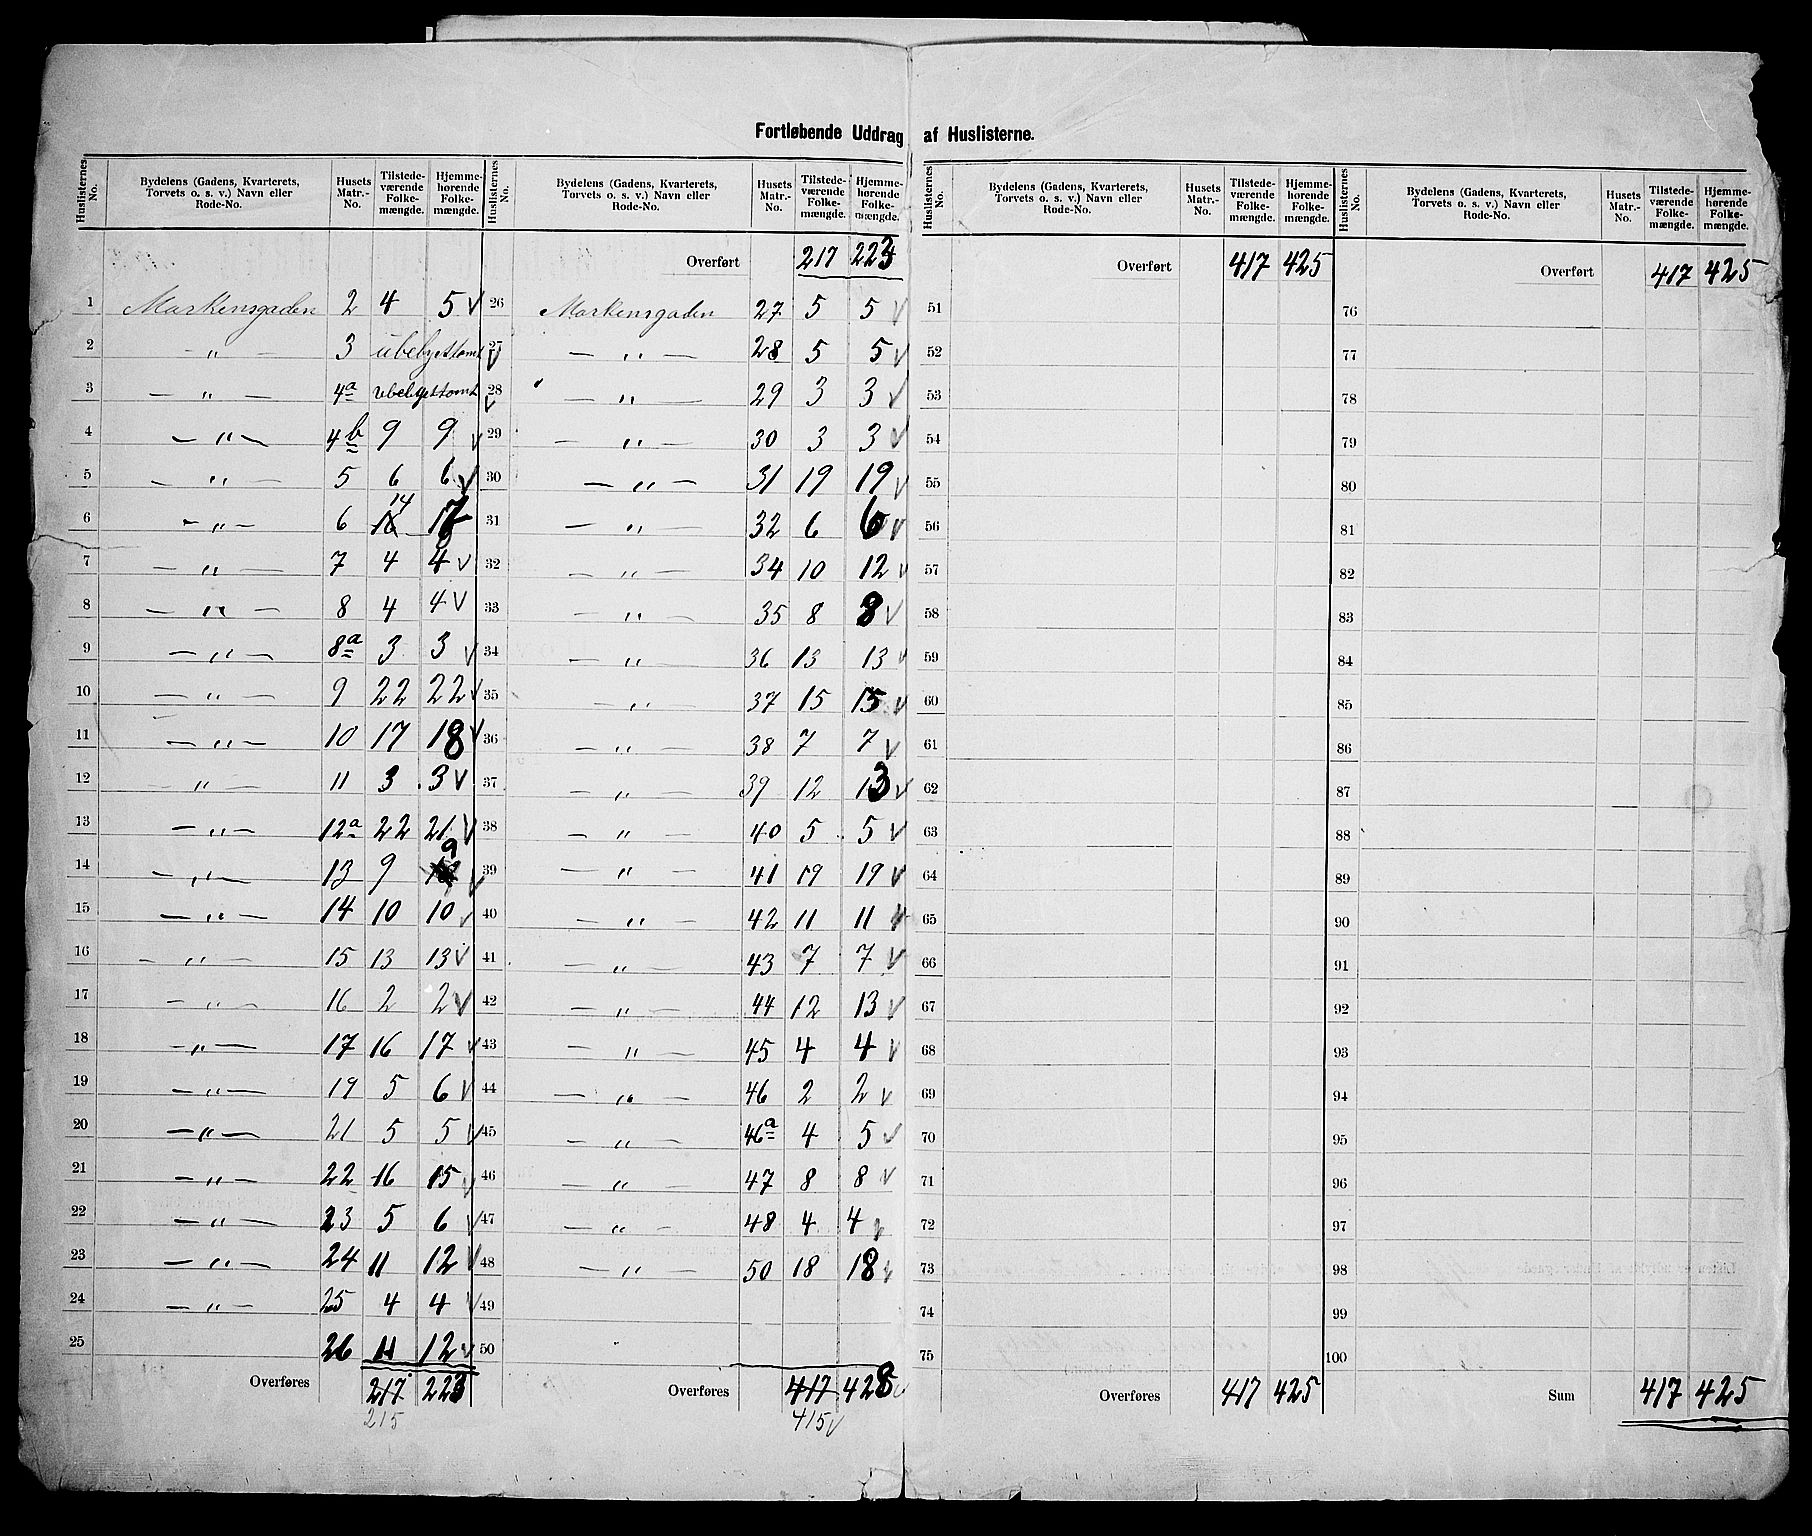 Fortløbende Uddrag af Huslisterne.
Huslisternes No. | Bydelens (Gadens, Kvarterets, Torvets o. s. v.) Navn eller Rode-No. | Husets Matr.-No. | Tilstedeværende Folkemængde. | Hjemmehørende Folkemængde.
1 Markensgaden 2 4 5 √
2 — „ — 3 ubebygt tomt √
3 — „ — 4a ubebygt tomt √
4 — „ — 4b 9 9 √
5 — „ — 5 6 6 √
6 — „ — 6 16 14
7 — „ — 7 4 4 √
8 — „ — 8 4 4 √
9 — „ — 8a 3 3 √
10 — „ — 9 22 22 √
11 — „ — 10 17 18 √
12 — „ — 11 3 3 √
13 — „ — 12a 22 21 √
14 — „ — 13 9 9 √
15 — „ — 14 10 10 √
16 — „ — 15 13 13 √
17 — „ — 16 2 2 √
18 — „ — 17 16 17 √
19 — „ — 19 5 6 √
20 — „ — 21 5 5 √
21 — „ — 22 16 15 √
22 — „ — 23 5 6 √
23 — „ — 24 11 12 √
24 — „ — 25 4 4 √
25 26 11 12 √
Overføres 217 223
215
Huslisternes No. | Bydelens (Gadens, Kvarterets, Torvets o. s. v.) Navn eller Rode-No. | Husets Matr.-No. | Tilstedeværende Folkemængde. | Hjemmehørende Folkemængde.
Overført 217 223
26 Markensgaden 27 5 5 √
27 — „ — 28 5 5 √
28 — „ — 29 3 3 √
29 — „ — 30 3 3 √
30 — „ — 31 19 19 √
31 — „ — 32 6 6 √
32 — „ — 34 10 12 √
33 — „ — 35 8 8 √
34 — „ — 36 13 13 √
35 — „ — 37 15 15 √
36 — „ — 38 7 7 √
37 — „ — 39 12 13 √
38 — „ — 40 5 5 √
39 — „ — 41 19 19 √
40 — „ — 42 11 11 √
41 — „ — 43 7 7 √
42 — „ — 44 12 13 √
43 — „ — 45 4 4 √
44 — „ — 46 2 2 √
45 — „ — 46a 4 5 √
46 — „ — 47 8 8 √
47 — „ — 48 4 4 √
48 — „ — 50 18 18 √
49
50
Overføres 417 428 √
415 √
Huslisternes No. | Bydelens (Gadens, Kvarterets, Torvets o. s. v.) Navn eller Rode-No. | Husets Matr.-No. | Tilstedeværende Folkemængde. | Hjemmehørende Folkemængde.
Overført 417 425
51
52
53
54
55
56
57
58
59
60
61
62
63
64
65
66
67
68
69
70
71
72
73
74
75
Overføres 417 425
Huslisternes No. | Bydelens (Gadens, Kvarterets, Torvets o. s. v.) Navn eller Rode-No. | Husets Matr.-No. | Tilstedeværende Folkemængde. | Hjemmehørende Folkemængde.
Overført 417 425
76
77
78
79
80
81
82
83
84
85
86
87
88
89
90
91
92
93
94
95
96
97
98
99
100
Sum 417 425